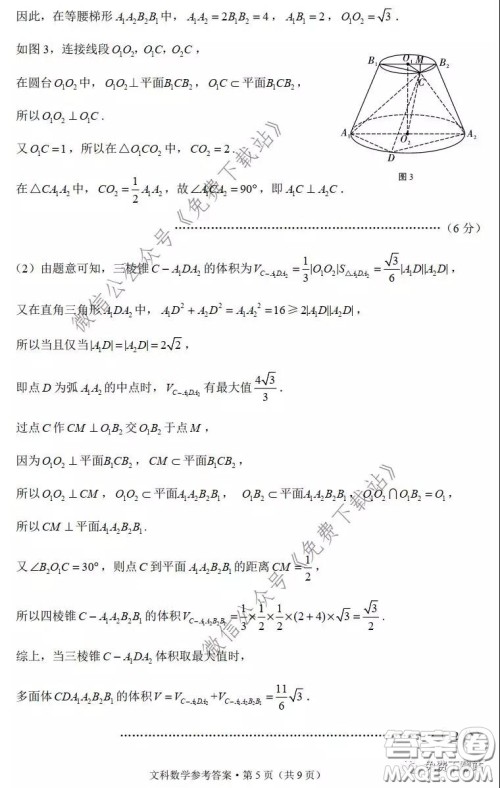 因此，在等腰梯形A₁A₂B₂B₁中，A₁A₂=2B₁B₂=4，A₁B₁=2，O₁O₂=√3．
如图3，连接线段O₁O₂，O₁C，O₂C，
在圆台O₁O₂中，O₁O₂⊥平面B₁CB₂，O₁C⊂平面B₁CB₂，
所以O₁O₂⊥O₁C．
又O₁C=1，所以在△O₁CO₂中，CO₂=2．
在△CA₁A₂中，CO₂=1/2 A₁A₂，故∠A₁CA₂=90°，即A₁C⊥A₂C．
B₁ O₁ M B₂
C
A₁ O₂ A₂
D
图3
（6分）
（2）由题意可知，三棱锥C－A₁DA₂的体积为V_{C-A₁DA₂}=1/3|O₁O₂|S_{△A₁DA₂}=√3/6|A₁D||A₂D|，
又在直角三角形A₁DA₂中，A₁D²+A₂D²=A₁A₂²=16≥2|A₁D||A₂D|，
所以当且仅当|A₁D|=|A₂D|=2√2，
即点D为弧A₁A₂的中点时，V_{C-A₁DA₂}有最大值4√3/3．
过点C作CM⊥O₁B₂交O₁B₂于点M，
因为O₁O₂⊥平面B₁CB₂，CM⊂平面B₁CB₂，
所以O₁O₂⊥CM，O₁O₂⊂平面A₁A₂B₂B₁，O₁B₂⊂平面A₁A₂B₂B₁，O₁O₂∩O₁B₂=O₁，
所以CM⊥平面A₁A₂B₂B₁.
又∠B₂O₁C=30°，则点C到平面A₁A₂B₂B₁的距离CM=1/2，
所以四棱锥C－A₁A₂B₂B₁的体积V_{C-A₁A₂B₂B₁}=1/3×1/2×1/2×(2+4)×√3=√3/2．
综上，当三棱锥C－A₁DA₂体积取最大值时，
多面体CDA₁A₂B₂B₁的体积V=V_{C-A₁DA₂}+V_{C-A₁A₂B₂B₁}=11/6√3．
文科数学参考答案·第5页（共9页）
微信公众号《免费下载站》
微信公众号《免费下载站》
答案圈
MXQE.COM